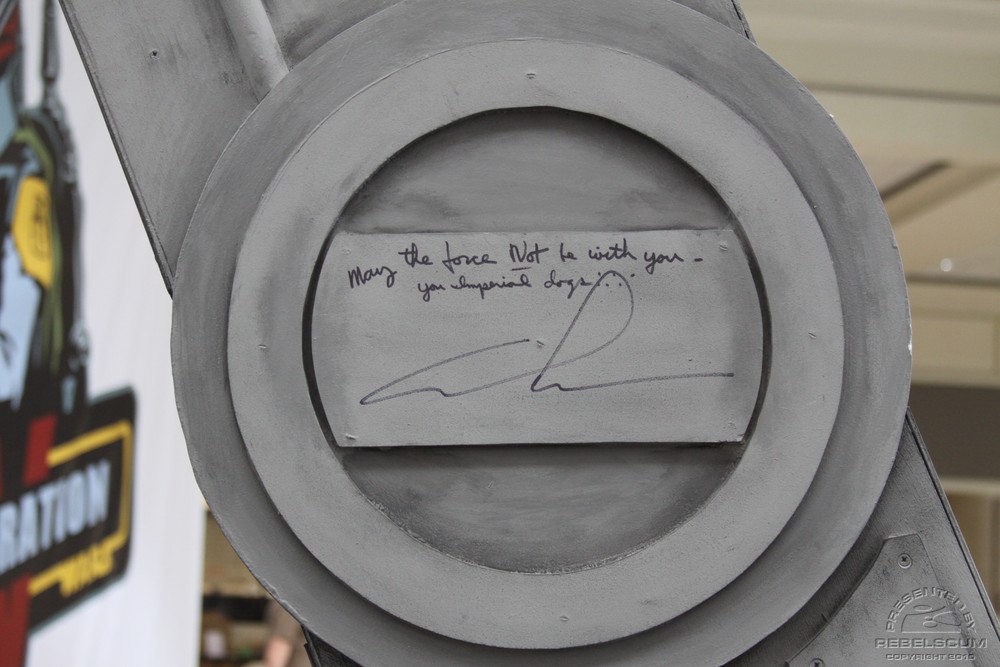 May the force Not be with you -
you Imperial dogs...
RATION
PRESENTED BY
REBELSCUM
COPYRIGHT 2010